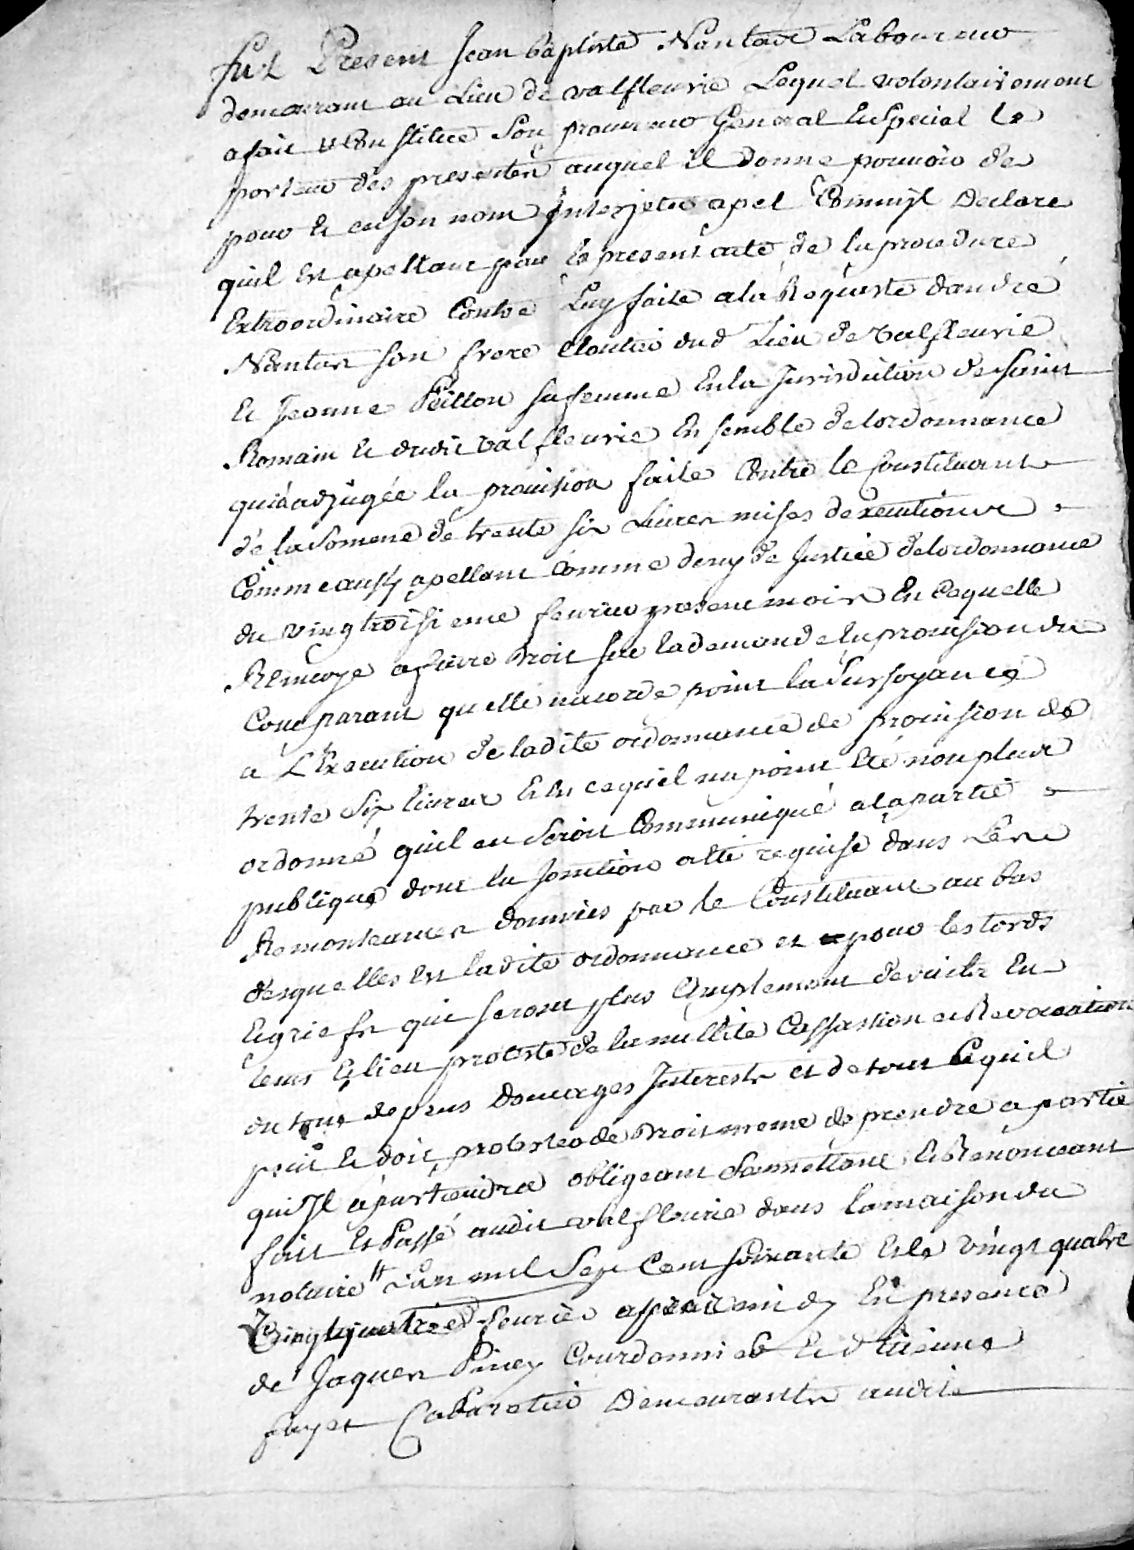 fut Present Jean baptiste Nantas Laboureur
demeurant au Lieu de valfleurie Lequel volontairement
a fait & Constitué Son procureur General Especial Le
porteur des presentes auquel il donne pouvoir de
pour & en son nom Interjetter apel Comm'jl Declare
quil Est apellant par le present acte de la procedure
Extraordinaire Contre Luy faite a la Requeste dandré
Nantas son frere Cloutier dud Lieu de Valfleurie
Et Jeanne Peillon sa femme En la Jurisdiction de Saint
Romain & dudit valfleurie Ensemble de lordonnance
qui a adjugée la provision faite Contre le Constituant
de la Somme de trente six Livres mises dexecutions
Comme aussy apellant Comme deny de Justice de lordonnance
du vingtroisieme fevrier present mois En Cequelle
Renvoye a faire Droit sur la demande En provision du
Comparant quelle nacorde point la Sursoyance
a L'Execution de ladite ordonnance de provision de
trente Six livres Et En cequil na point Eté non plus
ordonné quil en Seroit Communiqué a la partie
publique dont la Jonction a été requise dans Les
Remontrances données par le Constituant au bas
desquelles Est ladite ordonnance et pour les tords
Et griefs qui seront plus Amplement deduits En
tems & lieu proteste de la nullité Cassassion et Revocation
du tout depens Domages Interests et de tout Cequil
peut & doit protester de Droit meme de prendre a partie
qui Jl apartiendra obligeant Soumettant & Renonceant
fait Et Passé audit valfleurie dans la maison du
notaire Lan mil Sept Cent Soixante Et le vingt quatre
Vingtquatre fevrier apres midy En presence
de Jaques Piney Courdonnier Et Etienne
fayet Cabaretier Demeurants audit